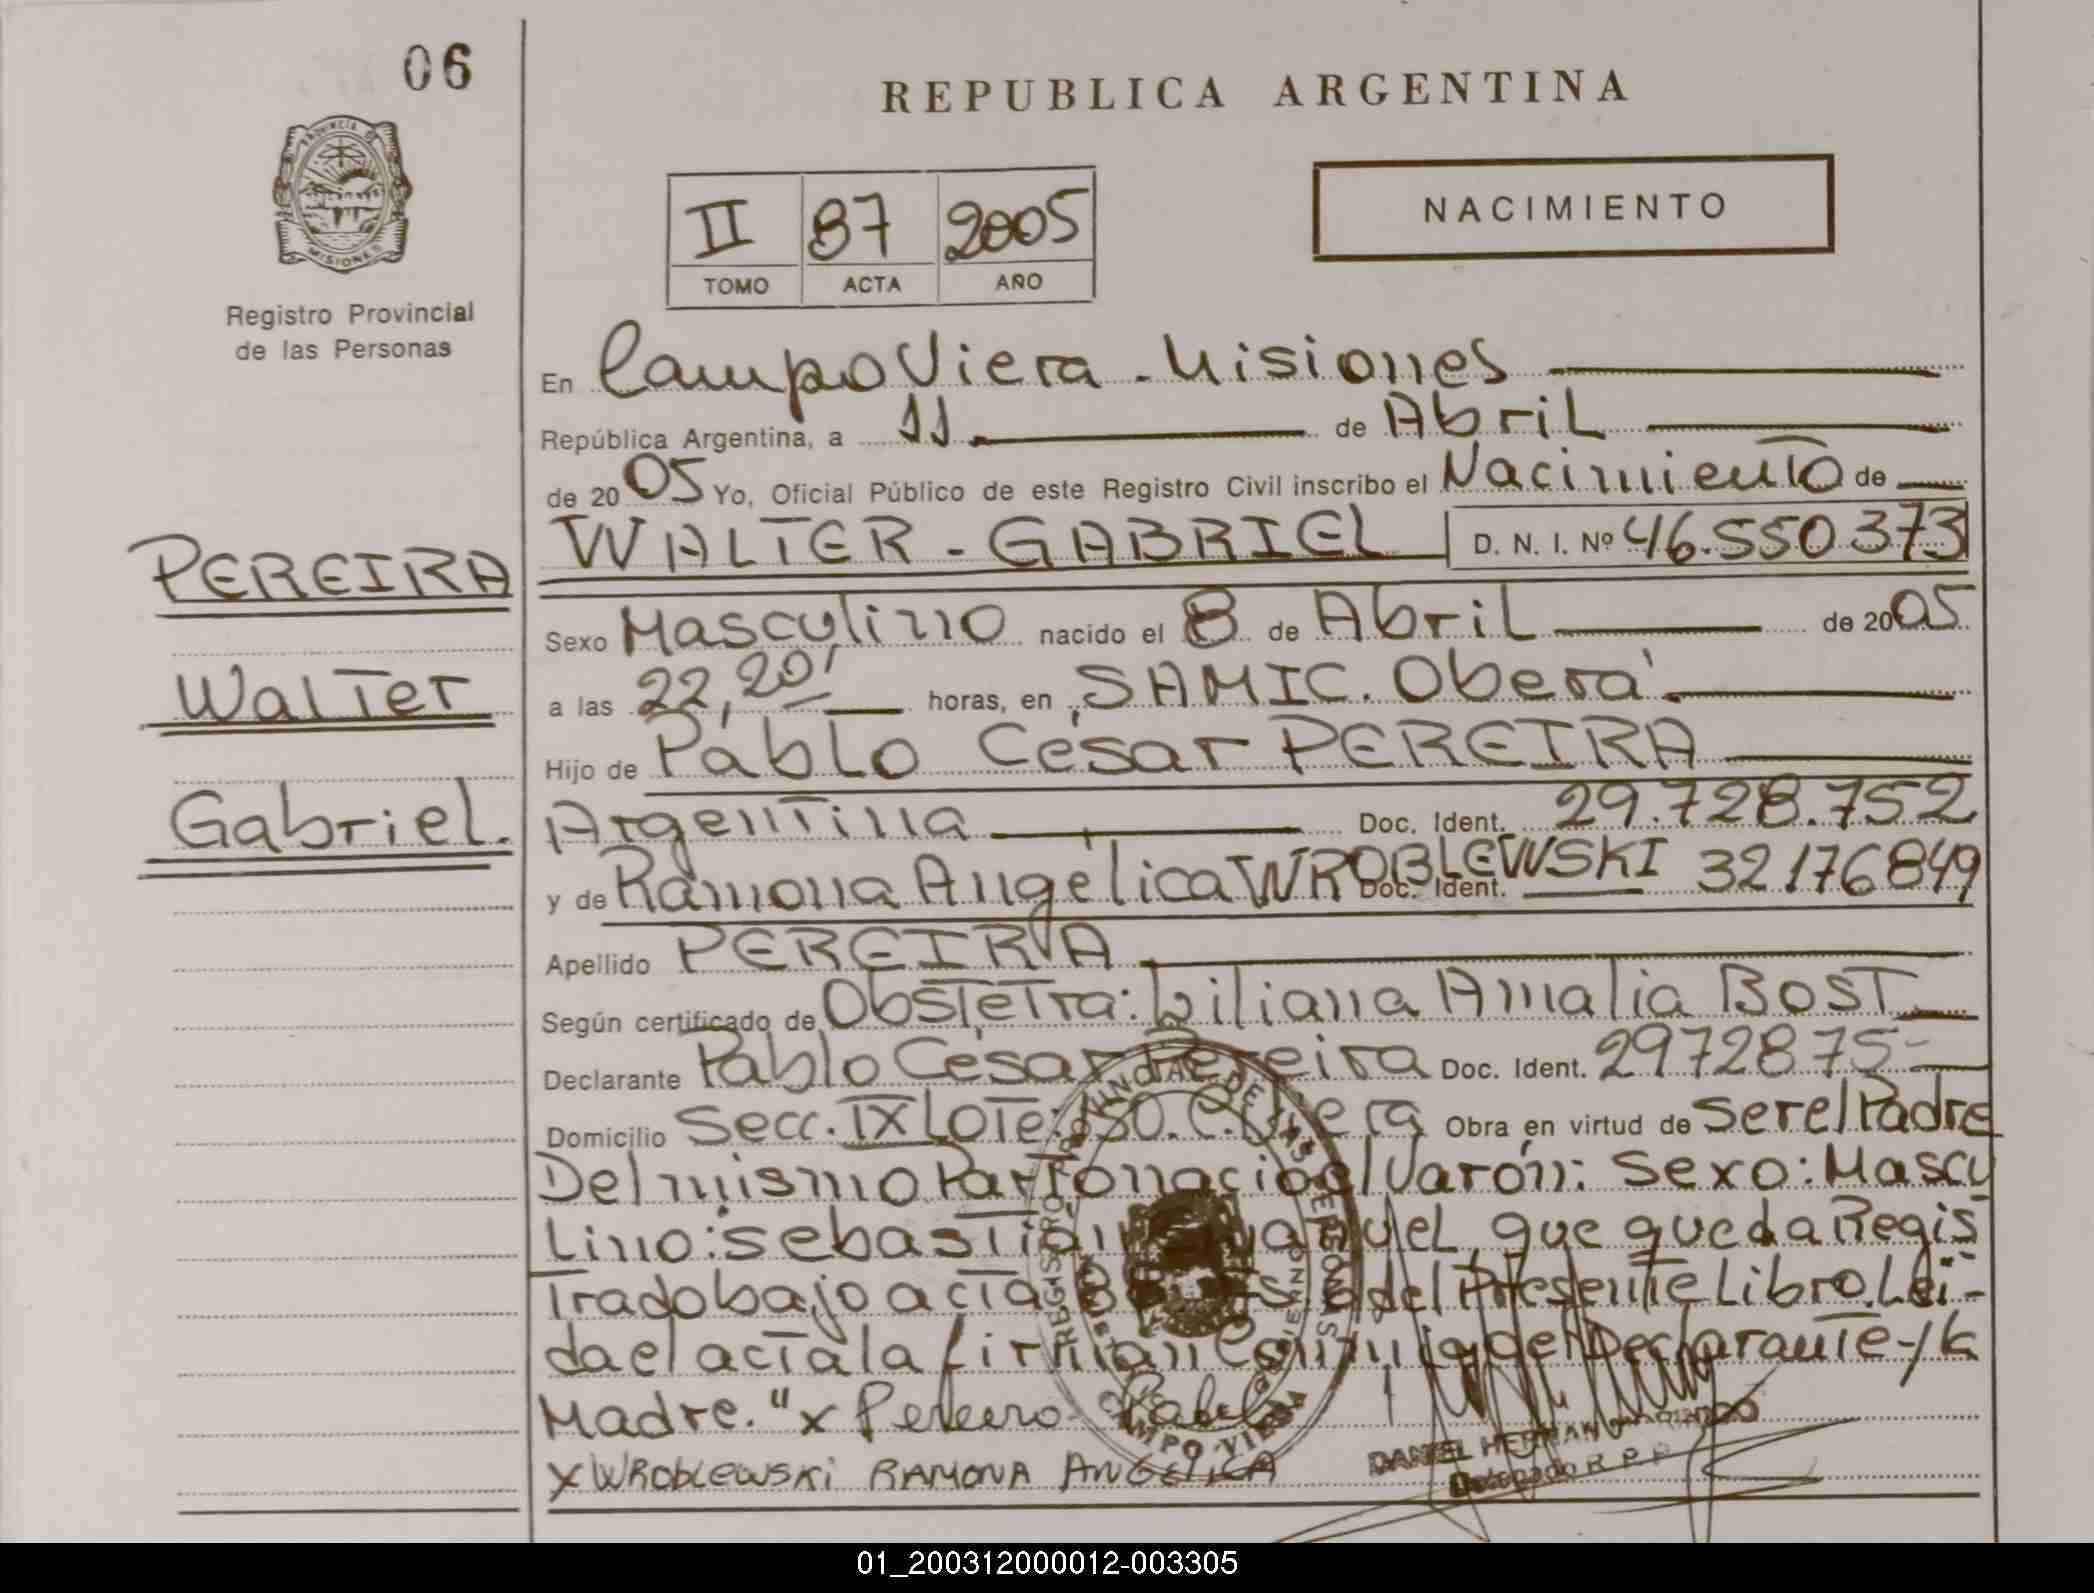 06
REPUBLICA ARGENTINA
PROVINCIA DE MISIONES
NACIMIENTO
II 87 2005
TOMO ACTA AÑO
Registro Provincial
de las Personas
En Campo Viera - Misiones
República Argentina, a 11 de Abril
de 2005 Yo, Oficial Público de este Registro Civil inscribo el Nacimiento de
WALTER - GABRIEL D. N. I. Nº 46.550.373
PEREIRA
Walter
Gabriel.
Sexo Masculino nacido el 8 de Abril de 2005
a las 22,20' horas, en SAMIC. Oberá.
Hijo de Pablo César PEREIRA
Argentina Doc. Ident. 29.728.752
y de Ramona Angélica WROBLEWSKI Doc. Ident. 32176849
Apellido PEREIRA
Según certificado de Obstetra: Liliana Amalia BOST
Declarante Pablo César Pereira Doc. Ident. 2972875-
Domicilio Secc. IX Lote: 150. C. Viera Obra en virtud de ser el Padre
Del mismo Parto nació el Varón: Sexo: Mascu
Lino: Sebastián que queda Regis
Trado bajo acta del Presente Libro. Leí-
da el acta la firman Conmigo del Declarante-/La
Madre." x Pereira Pablo
x WROBLEWSKI RAMONA ANGELICA
REGISTRO PROVINCIAL DE LAS PERSONAS
CAMPO VIERA
DANIEL HERNAN
Delegado R P P
01_200312000012-003305